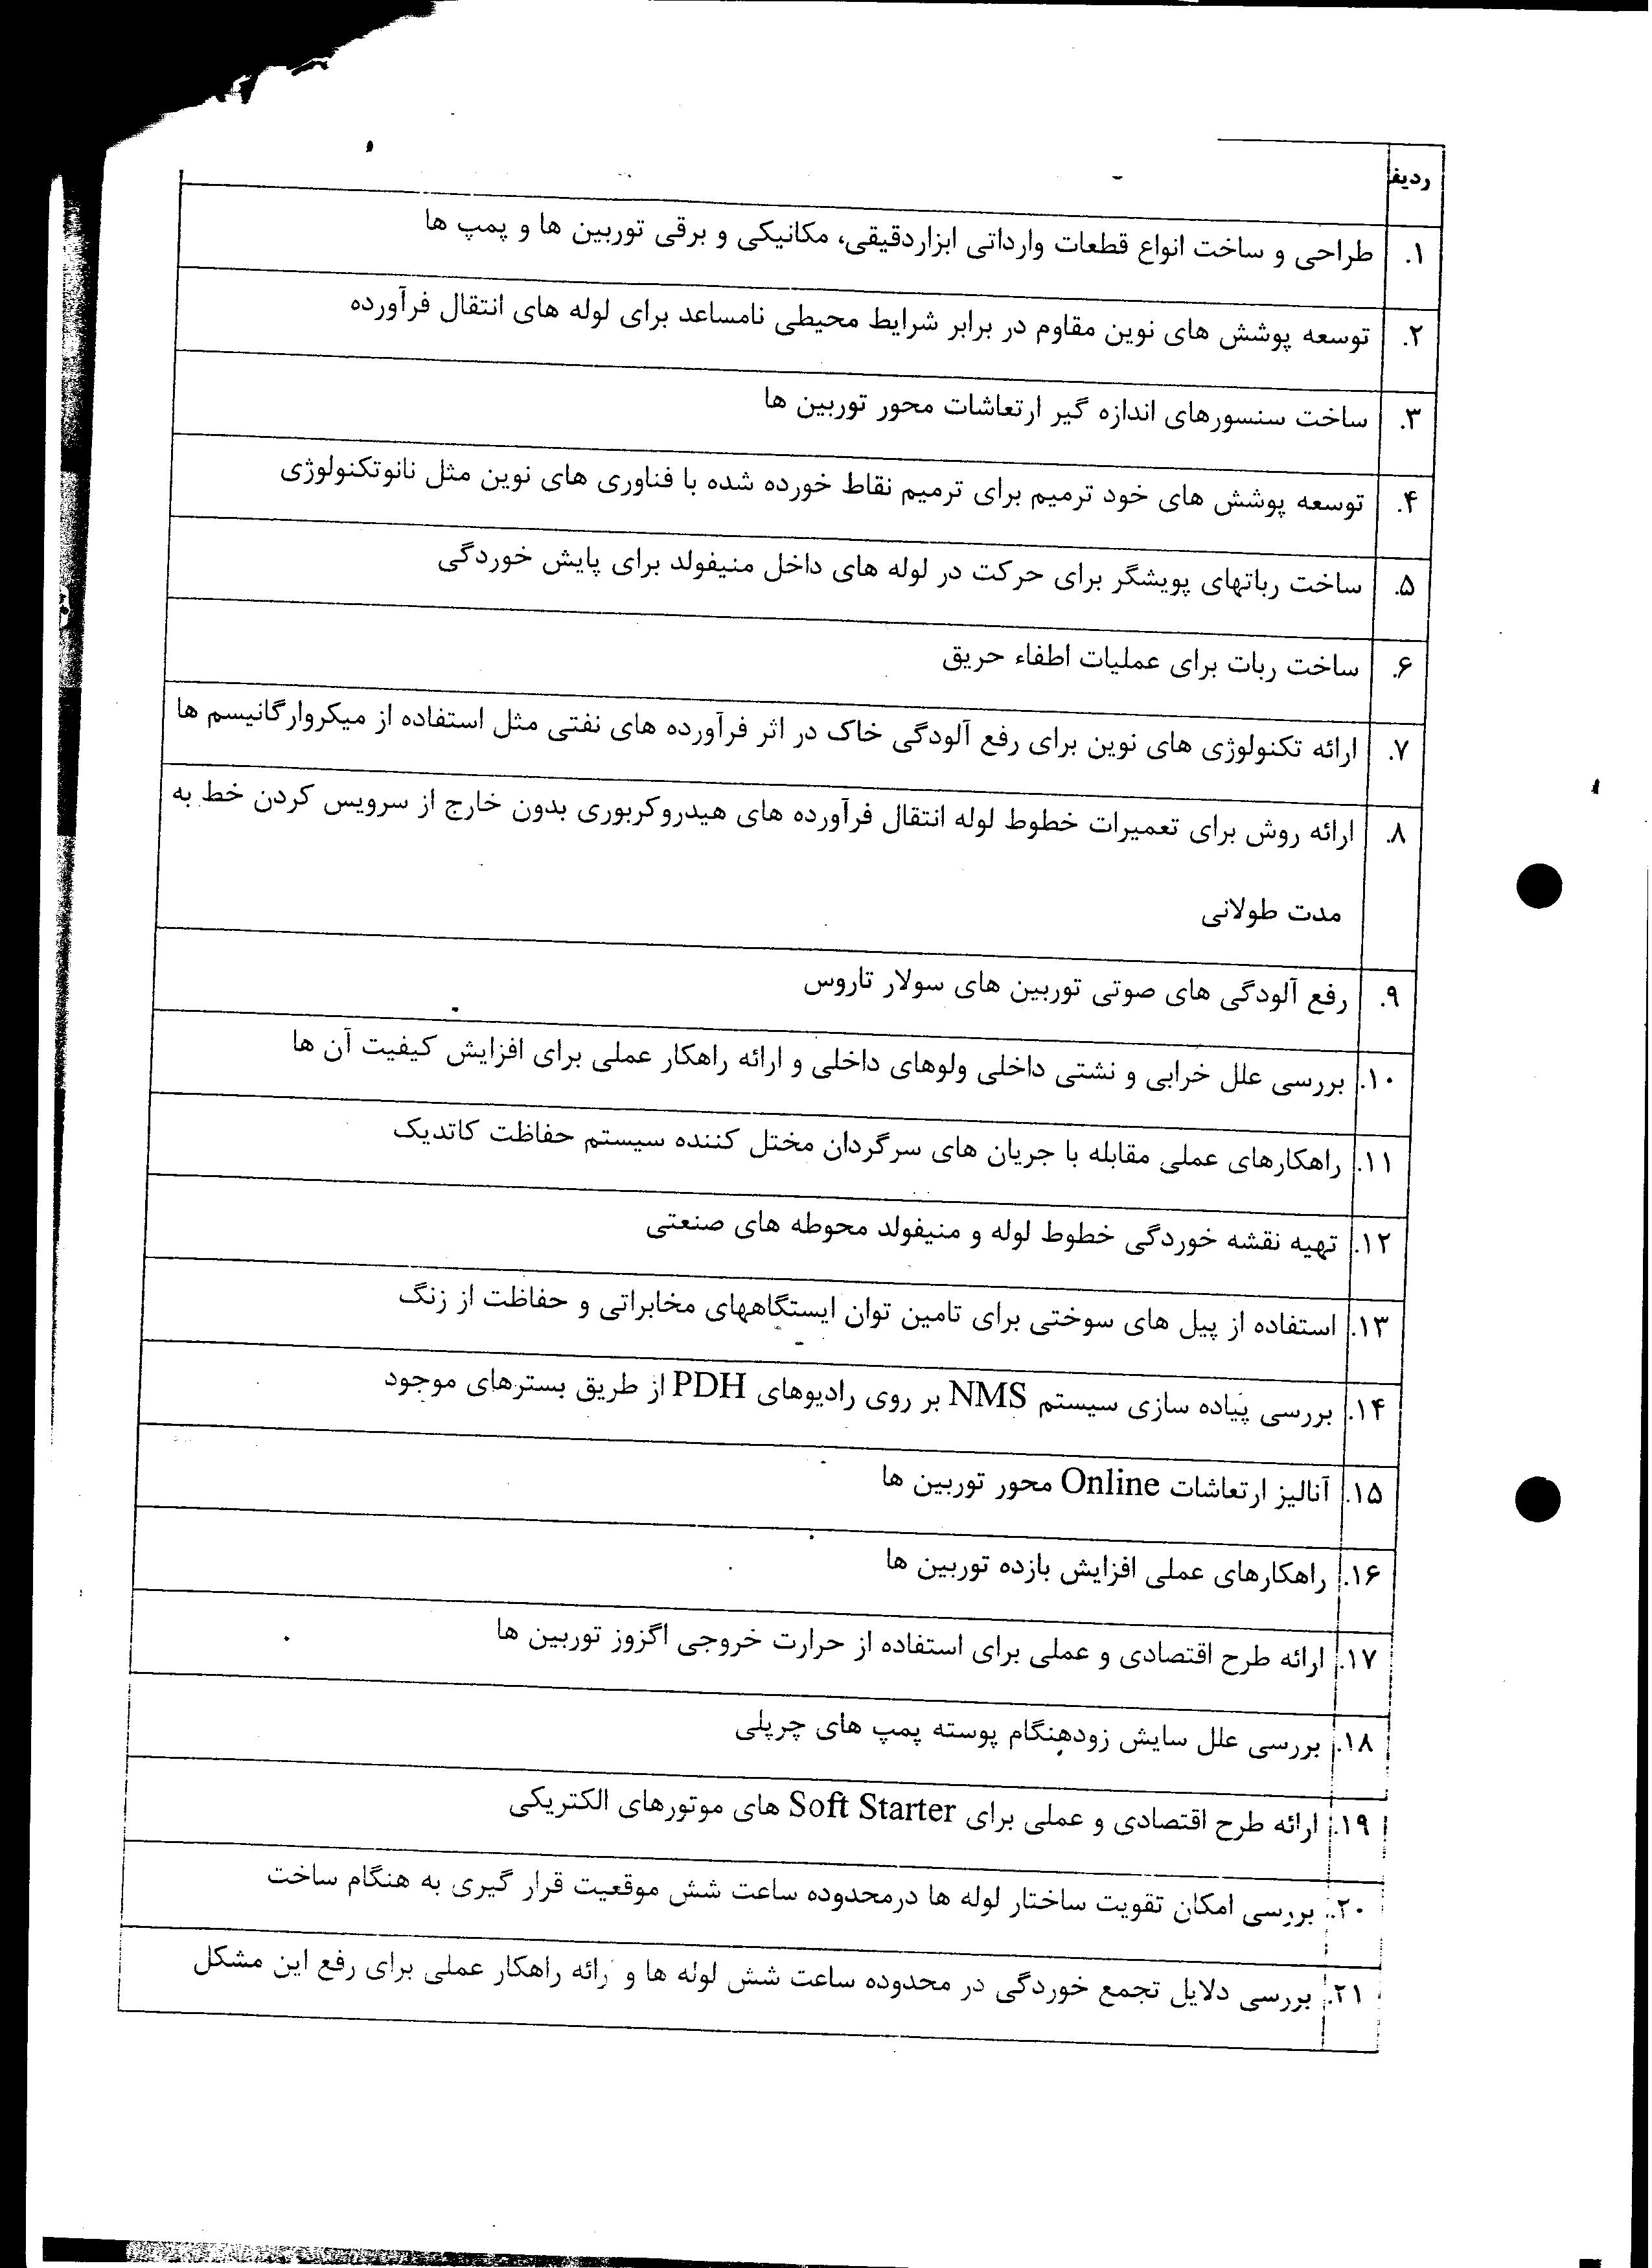 ردیف
۱. طراحی و ساخت انواع قطعات وارداتی ابزاردقیقی، مکانیکی و برقی توربین ها و پمپ ها
۲. توسعه پوشش های نوین مقاوم در برابر شرایط محیطی نامساعد برای لوله های انتقال فرآورده
۳. ساخت سنسورهای اندازه گیر ارتعاشات محور توربین ها
۴. توسعه پوشش های خود ترمیم برای ترمیم نقاط خورده شده با فناوری های نوین مثل نانوتکنولوژی
۵. ساخت رباتهای پویشگر برای حرکت در لوله های داخل منیفولد برای پایش خوردگی
۶. ساخت ربات برای عملیات اطفاء حریق
۷. ارائه تکنولوژی های نوین برای رفع آلودگی خاک در اثر فرآورده های نفتی مثل استفاده از میکروارگانیسم ها
۸. ارائه روش برای تعمیرات خطوط لوله انتقال فرآورده های هیدروکربوری بدون خارج از سرویس کردن خط به
مدت طولانی
۹. رفع آلودگی های صوتی توربین های سولار تاروس
۱۰. بررسی علل خرابی و نشتی داخلی ولوهای داخلی و ارائه راهکار عملی برای افزایش کیفیت آن ها
۱۱. راهکارهای عملی مقابله با جریان های سرگردان مختل کننده سیستم حفاظت کاتدیک
۱۲. تهیه نقشه خوردگی خطوط لوله و منیفولد محوطه های صنعتی
۱۳. استفاده از پیل های سوختی برای تامین توان ایستگاههای مخابراتی و حفاظت از زنگ
۱۴. بررسی پیاده سازی سیستم NMS بر روی رادیوهای PDH از طریق بسترهای موجود
۱۵. آنالیز ارتعاشات Online محور توربین ها
۱۶. راهکارهای عملی افزایش بازده توربین ها
۱۷. ارائه طرح اقتصادی و عملی برای استفاده از حرارت خروجی اگزوز توربین ها
۱۸. بررسی علل سایش زودهنگام پوسته پمپ های چرپلی
۱۹. ارائه طرح اقتصادی و عملی برای Soft Starter های موتورهای الکتریکی
۲۰. بررسی امکان تقویت ساختار لوله ها درمحدوده ساعت شش موقعیت قرار گیری به هنگام ساخت
۲۱. بررسی دلایل تجمع خوردگی در محدوده ساعت شش لوله ها و رائه راهکار عملی برای رفع این مشکل